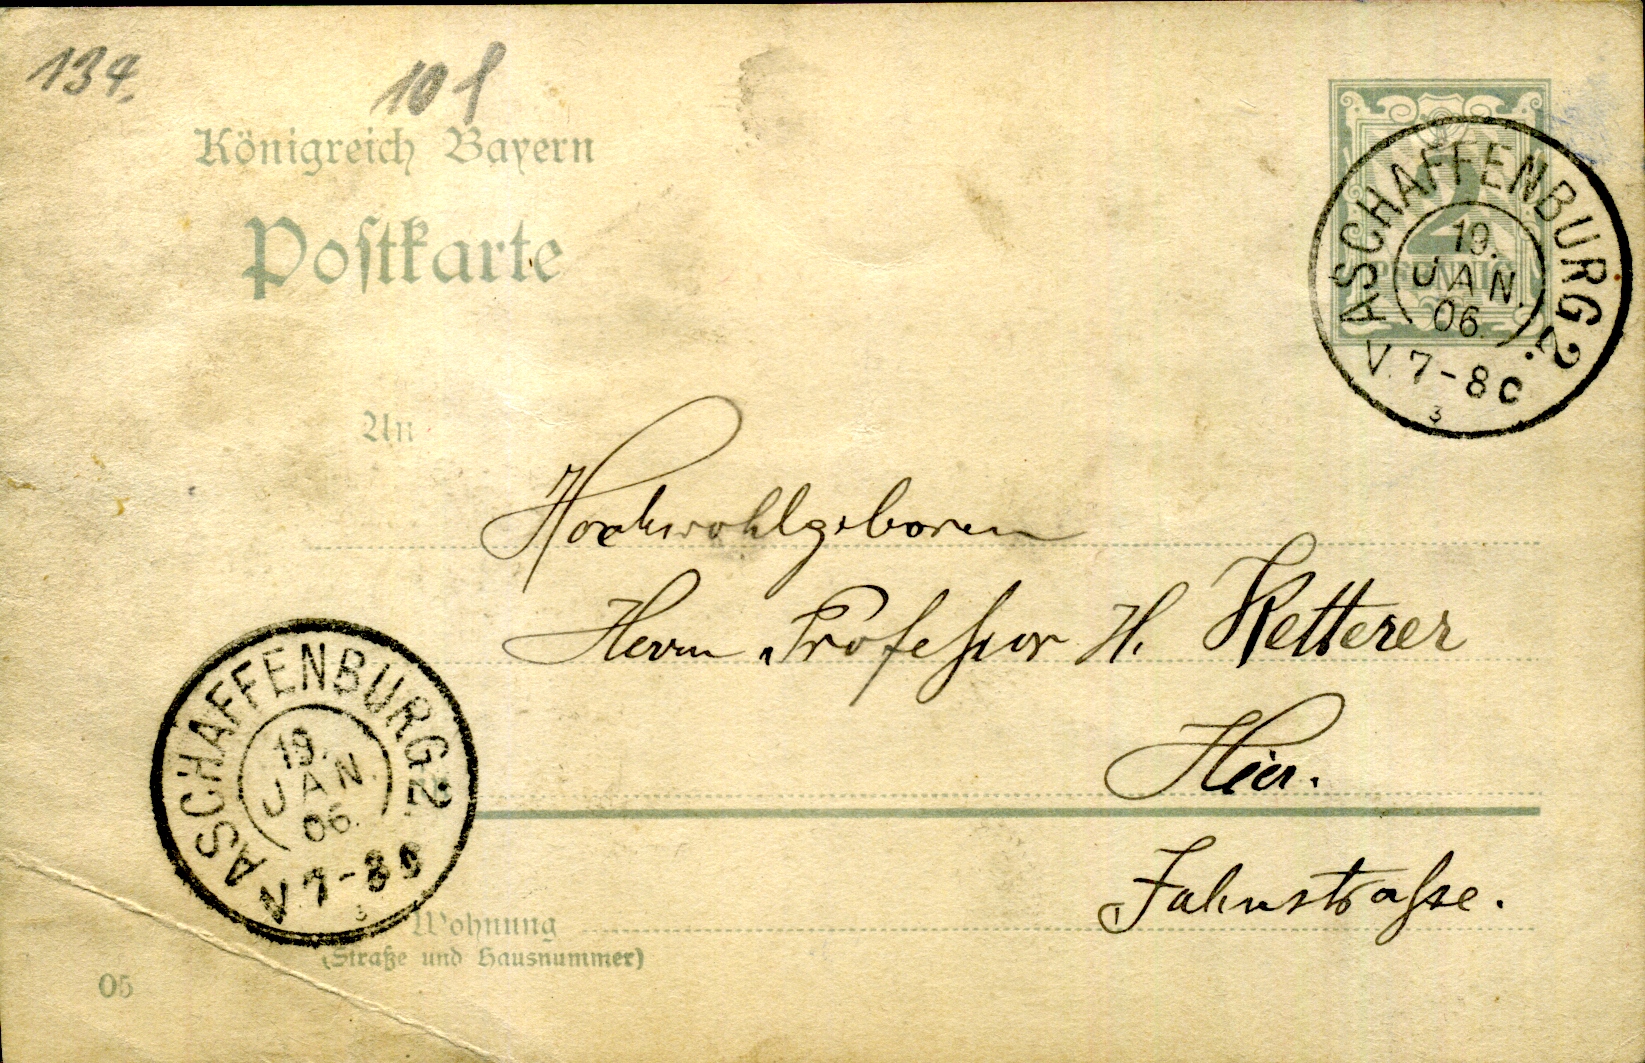 134.
10
Königreich Bayern
Postkarte
2
PFENNIG
ASCHAFFENBURG 2.
19.
JAN.
06.
V. 7-8 C
3
An
Hochwohlgeboren
Herrn Professor H. Ketterer
Hier.
Jahnstrasse.
ASCHAFFENBURG 2.
19.
JAN.
06.
V 7-8
3
Wohnung
(Straße und Hausnummer)
05